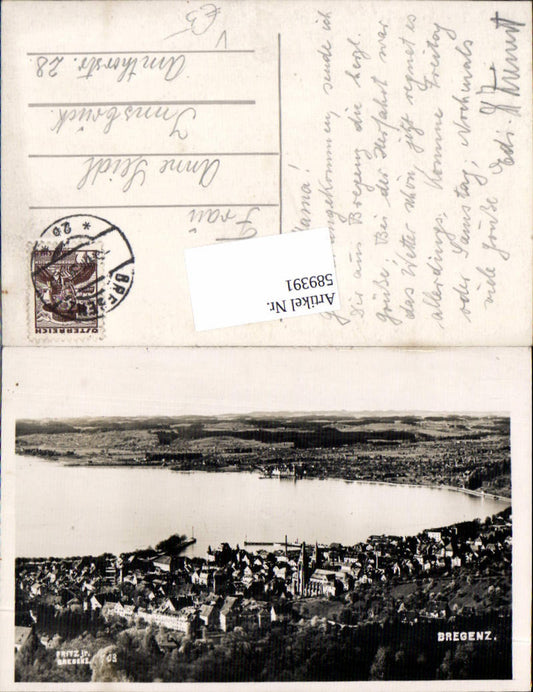 Mama!
angekommen, sende ich
Dir aus Bregenz die herzl.
Grüße. Bei der Herfahrt war
das Wetter schön, jetzt regnet es
allerdings. Komme Freitag
oder Samstag. Nochmals
viele Grüße
Frau
Anna Seidl
Innsbruck
Amthorstr. 28.
BREGENZ
ÖSTERREICH
Artikel Nr.
589391
BREGENZ.
FRITZ jr.
BREGENZ.
703